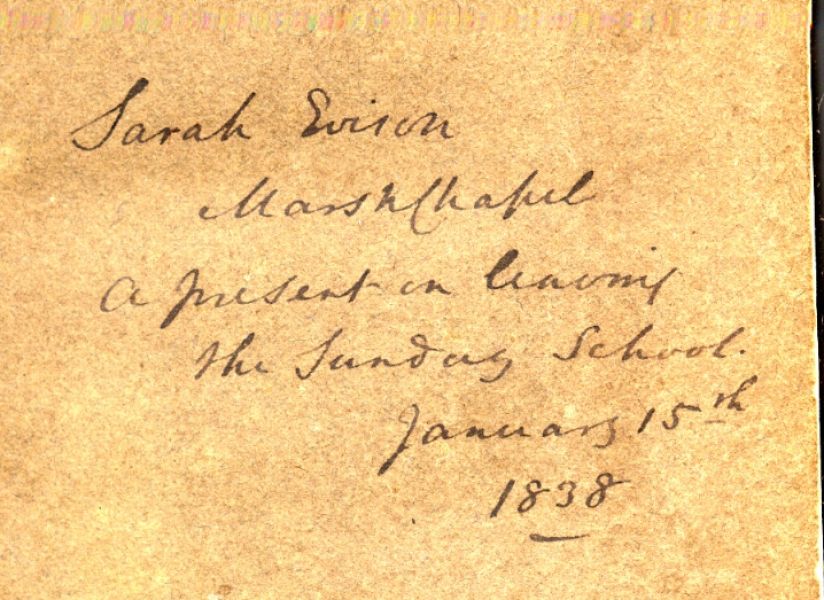 Sarah Evison
MarshChapel
A present on leaving
the Sunday School.
January 15th
1838